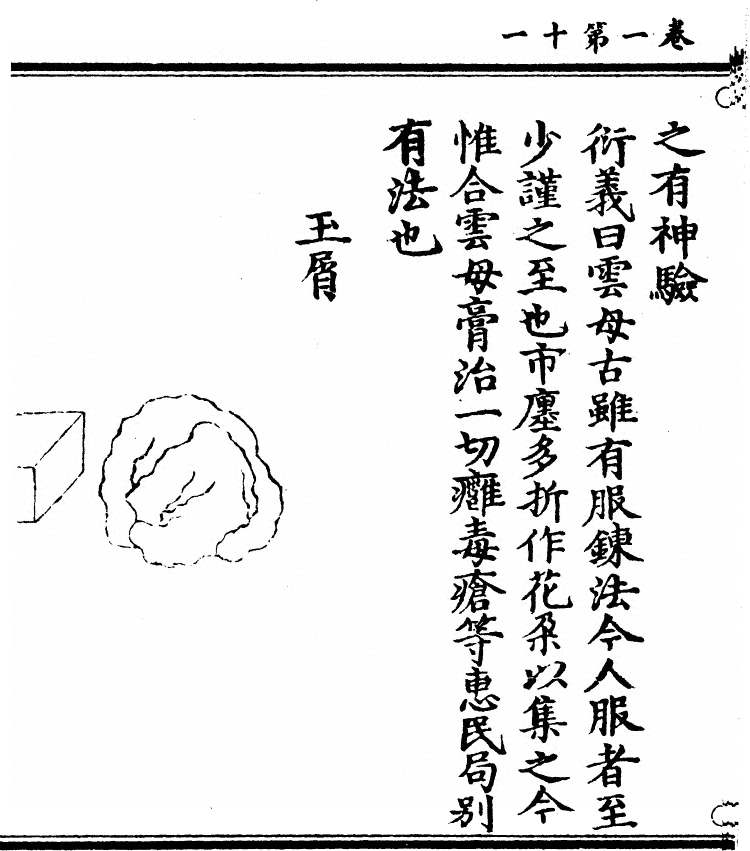 卷一第十一
之有神驗
衍義曰雲母古雖有服鍊法今人服者至
少謹之至也市廛多折作花朶以集之今
惟合雲母膏治一切癰毒瘡等惠民局别
有法也
玉屑